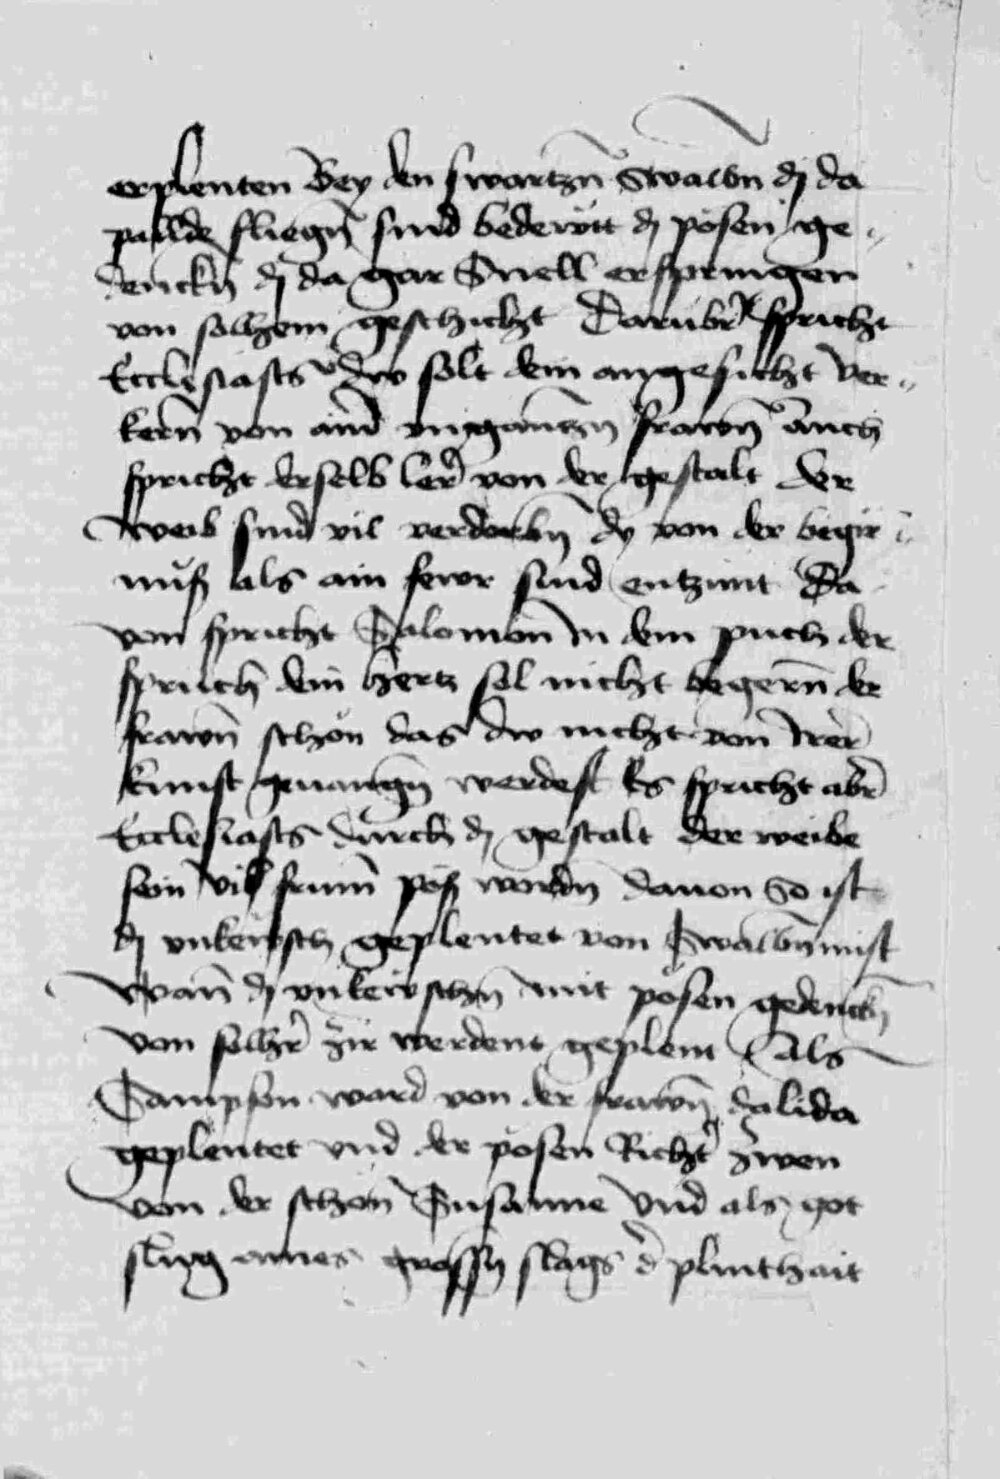 erplenten Bey den swartzn̄ Swalbn dÿ da
pallde fliegn̄ sind bedewtt dÿ pösen ge„
denckn̄ dÿ da gar Snell erspringen
von solhem geschicht Darubr̄ spricht
Ecclesiasts dw solt dein angesicht ver„
kern̄ von aind̄ frawn̄ Auch
spricht derselb ler̄ von der gestalt der
weib sind vil verdorbn̄ dy von der begir„
nuß als ain fewr sind entzunt Da
von spricht Salomon in dem puch der
spruch dein hertz sol nicht begern̄ der
frawn̄ schön das dw nicht von irer̄
kunst genangn̄ werdest Es spricht abr̄
Ecclesiasts durch dÿ gestalt der weibe
sein vil frum̄ pöß wordn̄ dauon So ist
dÿ vnkewsch geplentet von Swalbn̄mist
Wan̄ dÿ vnkewschn̄ mit pösen gedenckn̄
von solhr̄ zir werdent geplent Als
Sampson ward von der frawn̄ dalida
geplentet vnd der pösen Richtr̄ zwen
von der schon̄ Susanne vnd als got
slug aines grossn̄ slags d̄ plinthait